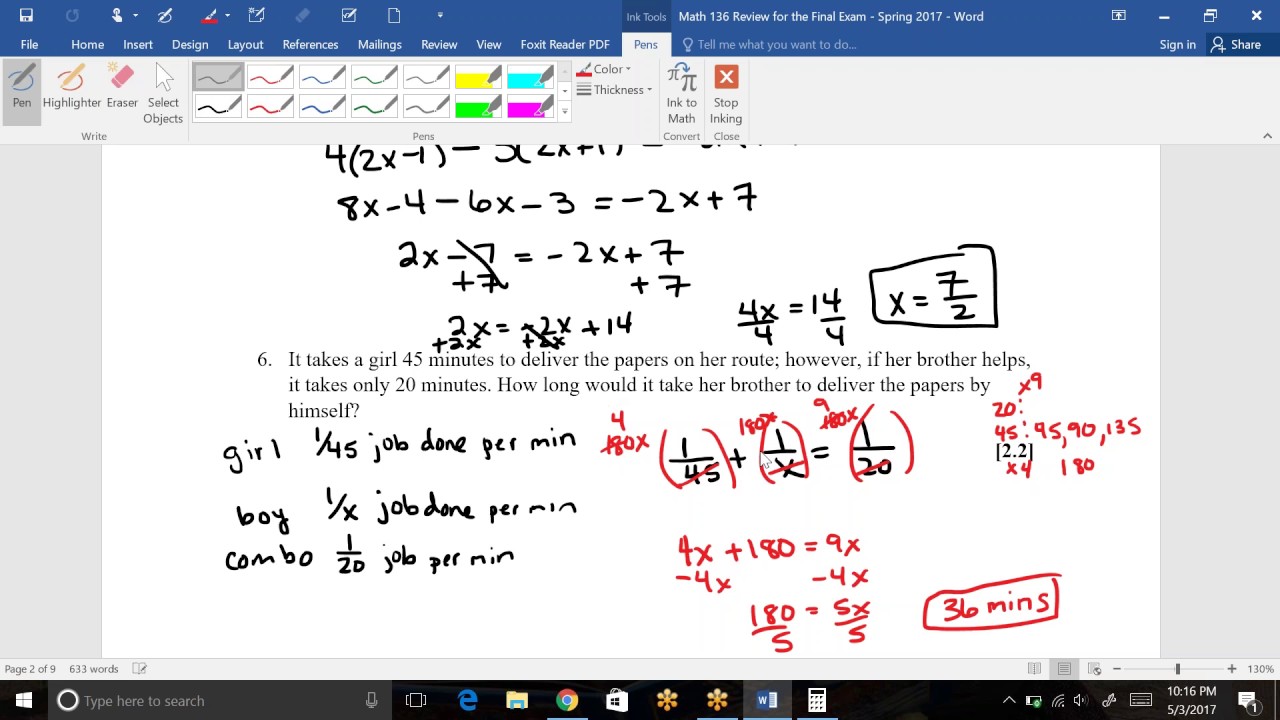 Ink Tools
Math 136 Review for the Final Exam - Spring 2017 - Word
File Home Insert Design Layout References Mailings Review View Foxit Reader PDF Pens Tell me what you want to do... Sign in Share
Pen Highlighter Eraser Select Objects
Color
Thickness
Ink to Math
Stop Inking
Write Pens Convert Close
4(2x-1) - 3(2x+1) =
8x-4-6x-3 = -2x+7
2x-7 = -2x+7
+7 +7
2x = -2x+14
+2x +2x
4x/4 = 14/4
x = 7/2
6. It takes a girl 45 minutes to deliver the papers on her route; however, if her brother helps,
it takes only 20 minutes. How long would it take her brother to deliver the papers by
himself?
x9
20:
45: 45, 90, 135
[2.2]
x4 180
girl 1/45 job done per min
boy 1/x job done per min
combo 1/20 job per min
4 9
180x (1/45) + 180x (1/x) = 180x (1/20)
4x + 180 = 9x
-4x -4x
180/5 = 5x/5
36 mins
Page 2 of 9 633 words 130%
Type here to search
10:16 PM
5/3/2017
1